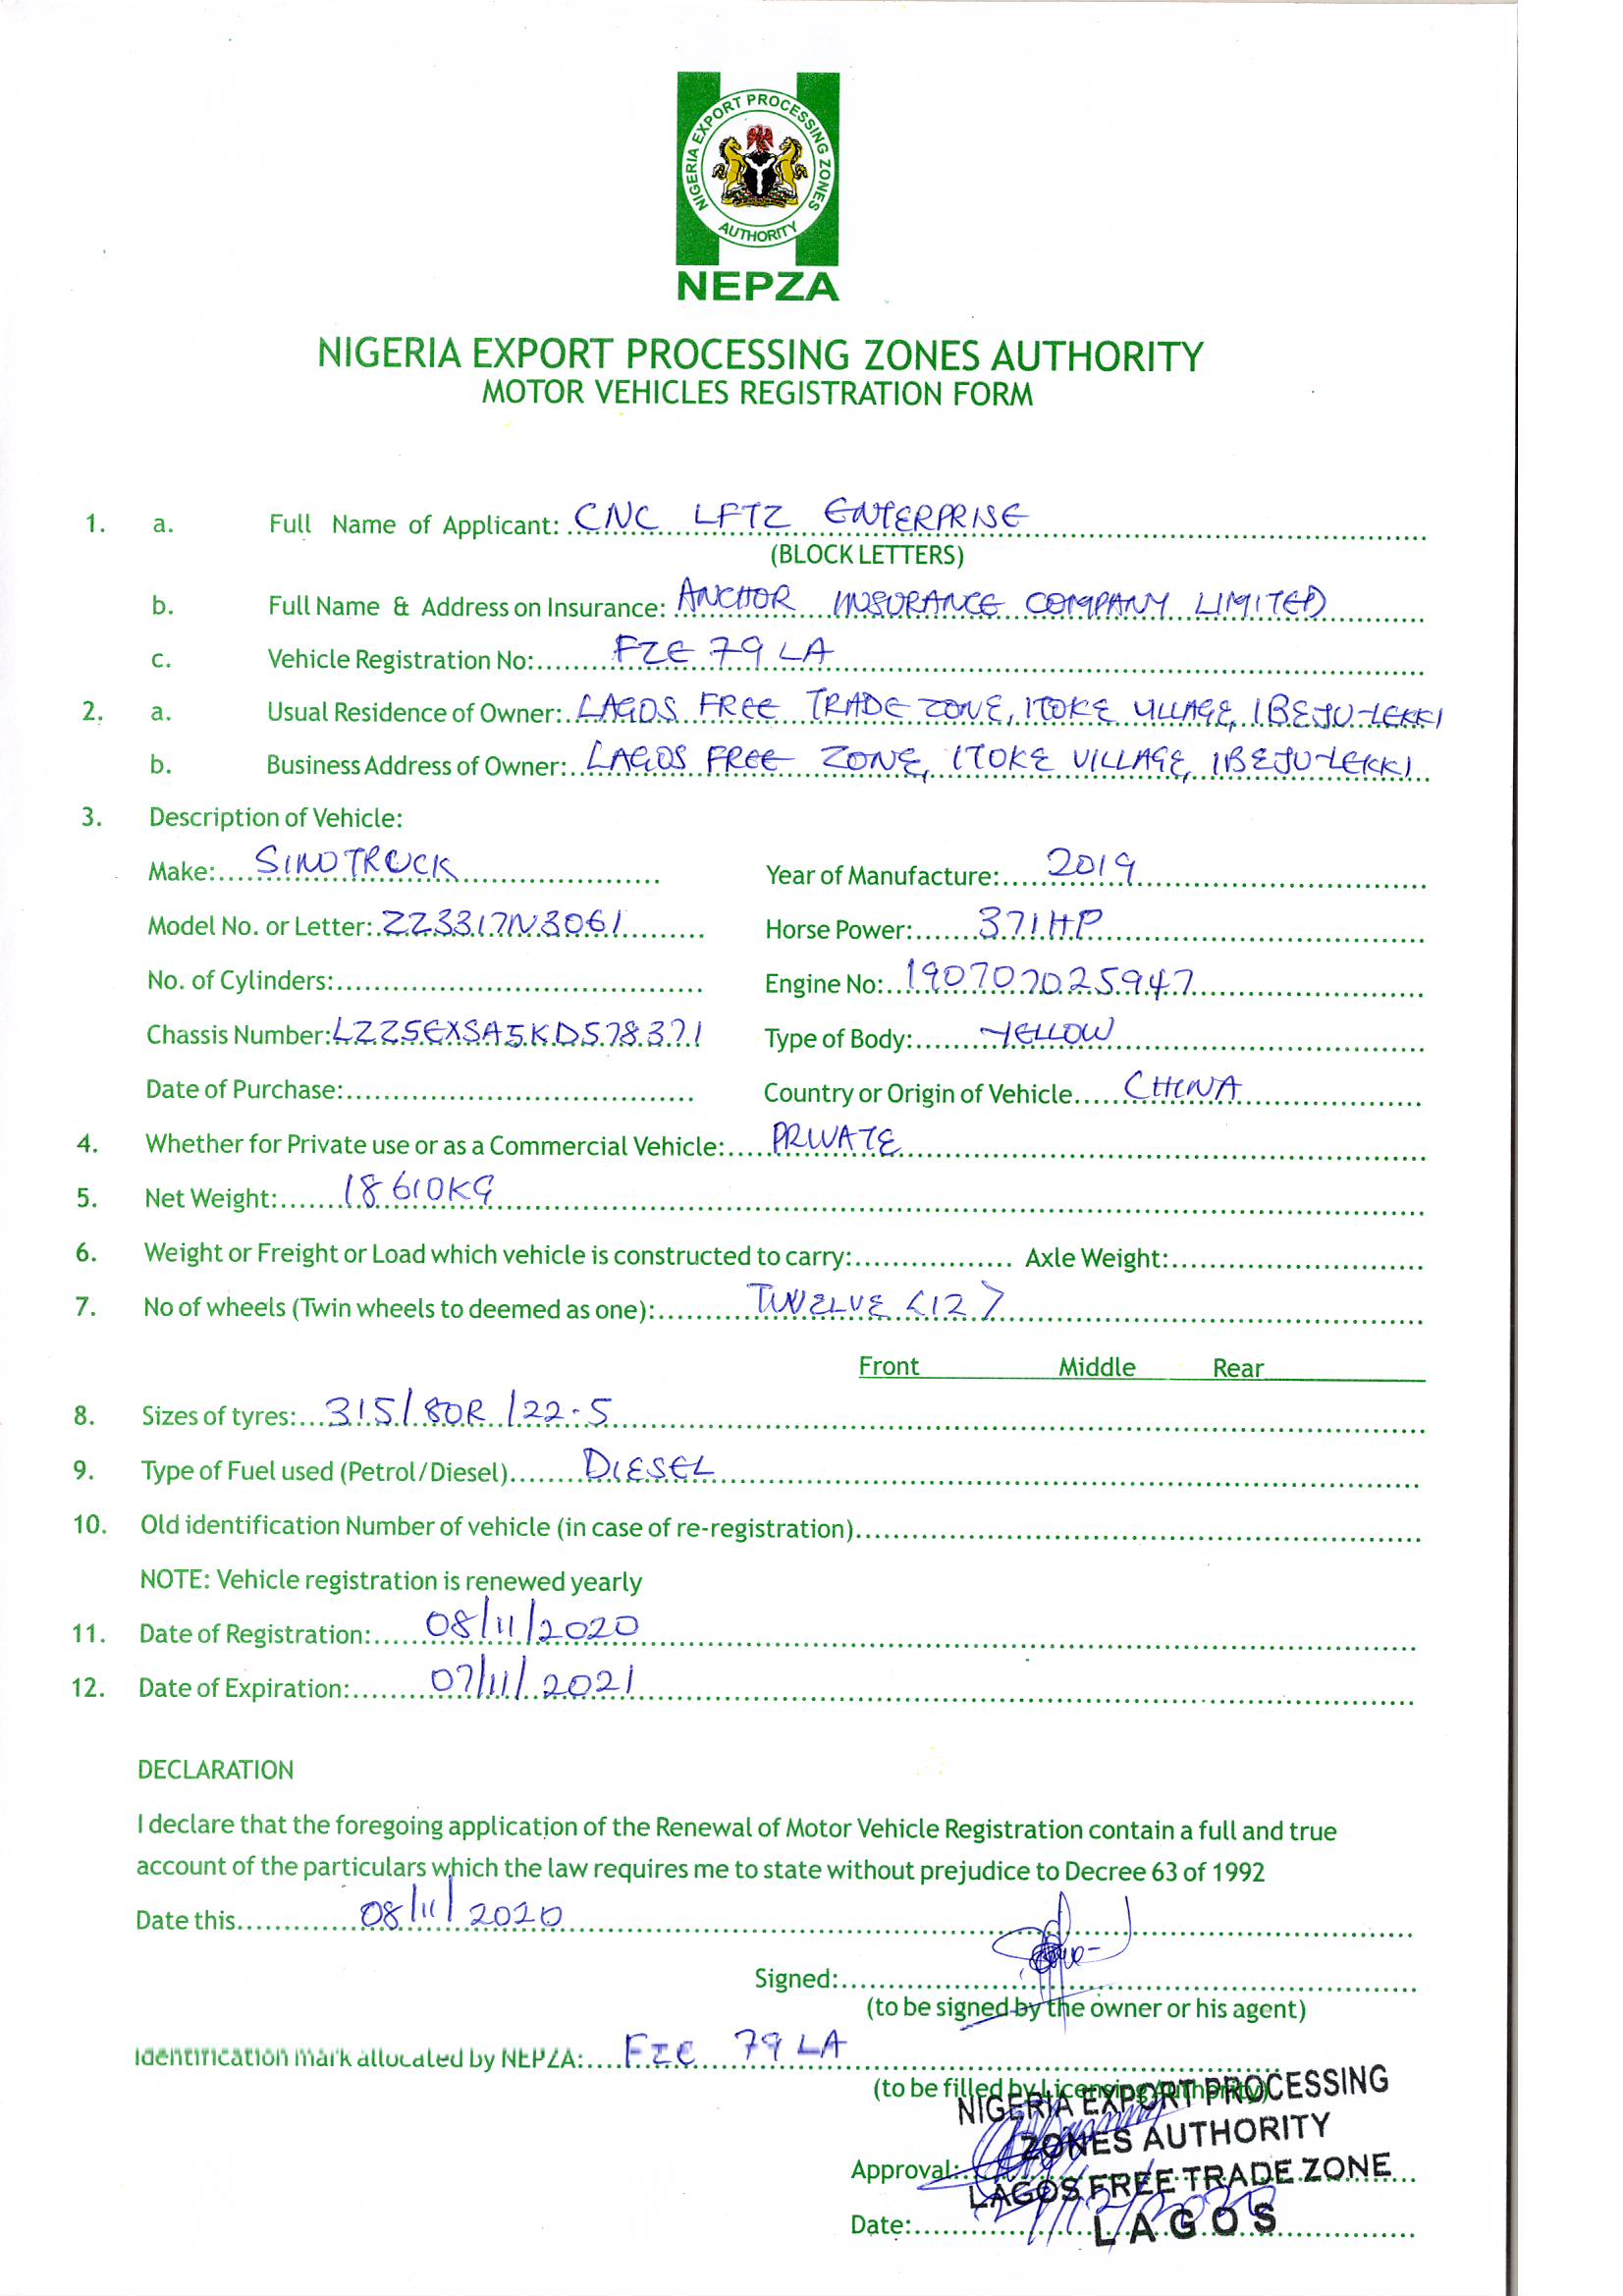 NIGERIA EXPORT PROCESSING ZONES
AUTHORITY
NEPZA
NIGERIA EXPORT PROCESSING ZONES AUTHORITY
MOTOR VEHICLES REGISTRATION FORM
1. a. Full Name of Applicant: CNC LFTZ ENTERPRISE
(BLOCK LETTERS)
b. Full Name & Address on Insurance: ANCHOR INSURANCE COMPANY LIMITED
c. Vehicle Registration No: FZE 79 LA
2. a. Usual Residence of Owner: LAGOS FREE TRADE ZONE, ITOKE VILLAGE, IBEJU-LEKKI
b. Business Address of Owner: LAGOS FREE ZONE, ITOKE VILLAGE, IBEJU-LEKKI
3. Description of Vehicle:
Make: SINOTRUCK Year of Manufacture: 2019
Model No. or Letter: ZZ3317N3061 Horse Power: 371HP
No. of Cylinders: Engine No: 190707025947
Chassis Number: LZZ5EXSA5KD578371 Type of Body: YELLOW
Date of Purchase: Country or Origin of Vehicle CHINA
4. Whether for Private use or as a Commercial Vehicle: PRIVATE
5. Net Weight: 18610KG
6. Weight or Freight or Load which vehicle is constructed to carry: Axle Weight:
7. No of wheels (Twin wheels to deemed as one): TWELVE <12>
Front Middle Rear
8. Sizes of tyres: 315/80R/22.5
9. Type of Fuel used (Petrol/Diesel) DIESEL
10. Old identification Number of vehicle (in case of re-registration)
NOTE: Vehicle registration is renewed yearly
11. Date of Registration: 08/11/2020
12. Date of Expiration: 07/11/2021
DECLARATION
I declare that the foregoing application of the Renewal of Motor Vehicle Registration contain a full and true
account of the particulars which the law requires me to state without prejudice to Decree 63 of 1992
Date this 08/11/2020
Signed:
(to be signed by the owner or his agent)
Identification mark allocated by NEPZA: FZE 79 LA
(to be filled by Licensing Authority)
NIGERIA EXPORT PROCESSING
ZONES AUTHORITY
Approval:
LAGOS FREE TRADE ZONE
Date:
LAGOS